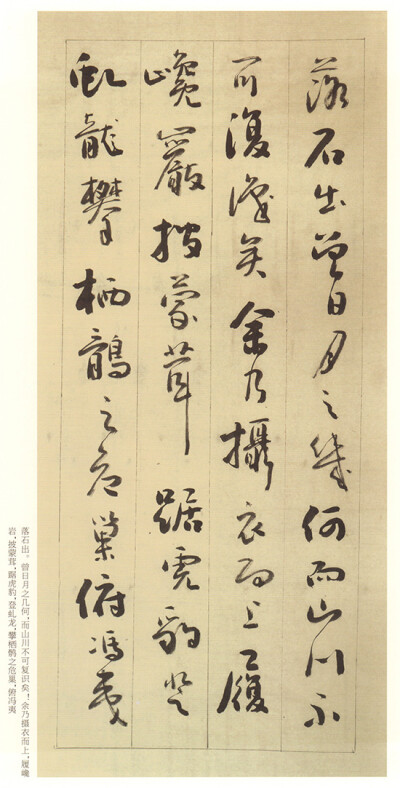 落石出曾日月之幾何而山川不
可復識矣余乃攝衣而上履
巉巖披蒙茸踞虎豹登
虬龍攀栖鶻之危巢俯馮夷
落石出。曾日月之几何，而山川不可复识矣！余乃摄衣而上，履巉
岩，披蒙茸，踞虎豹，登虬龙，攀栖鹘之危巢，俯冯夷